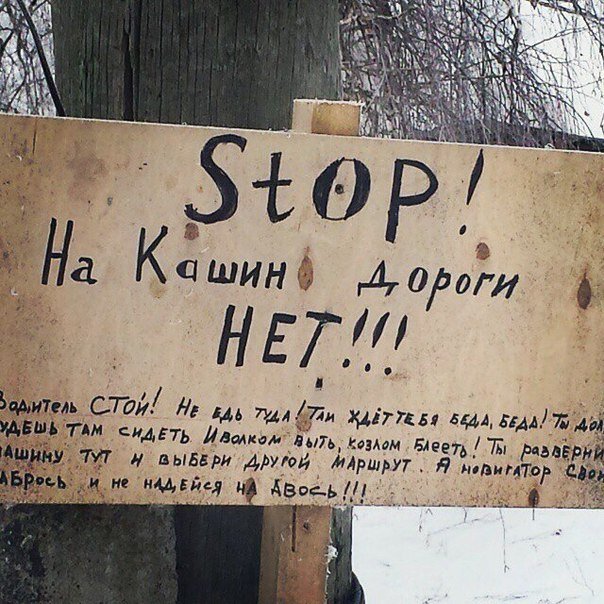 Stop!
На Кашин дороги
НЕТ!!!
Водитель СТОЙ! Не едь туда! Там ждёт тебя беда, беда! Ты дол
удешь там сидеть И волком выть, козлом блееть! Ты разверни
машину тут и выбери другой маршрут. А новигатор свой
аБрось и не надейся на Авось!!!